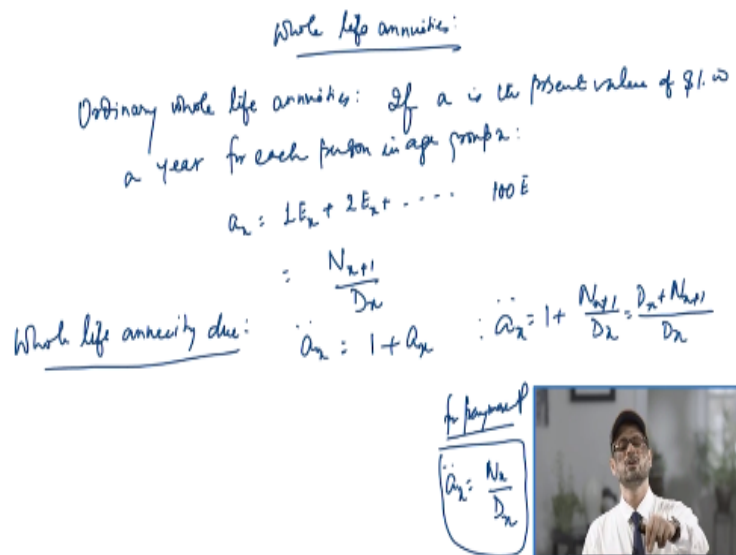 Whole life annuities:
Ordinary whole life annuities: If a is the present value of $1.00
a year for each person in age group x:
aₓ = 1Eₓ + 2Eₓ + .... 100E
= Nₓ₊₁/Dₓ
Whole life annuity due: äₓ = 1 + aₓ : äₓ = 1 + Nₓ₊₁/Dₓ = Dₓ + Nₓ₊₁/Dₓ
for payment
äₓ = Nₓ/Dₓ